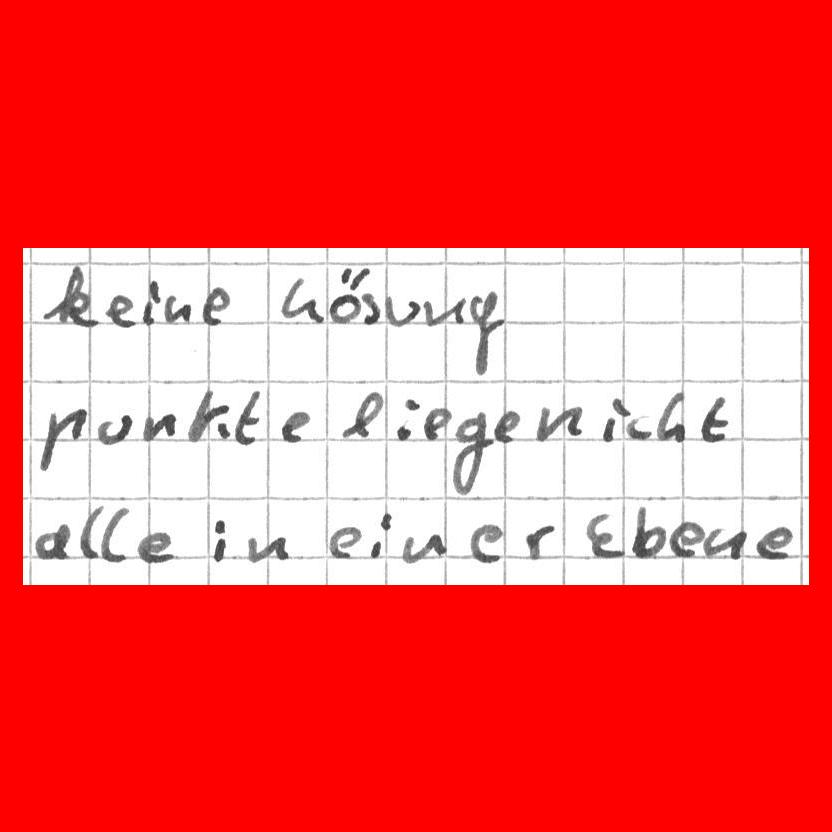 keine Lösung
punkte liegenicht
alle in einer Ebene